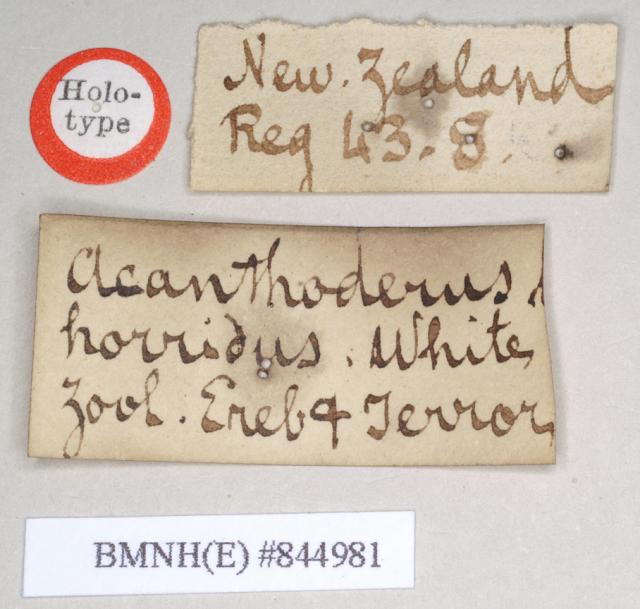 Holo-
type
New. Zealand
Reg 43. 8.
Acanthoderus
horridus. White
Zool. Ereb & Terror
BMNH(E) #844981